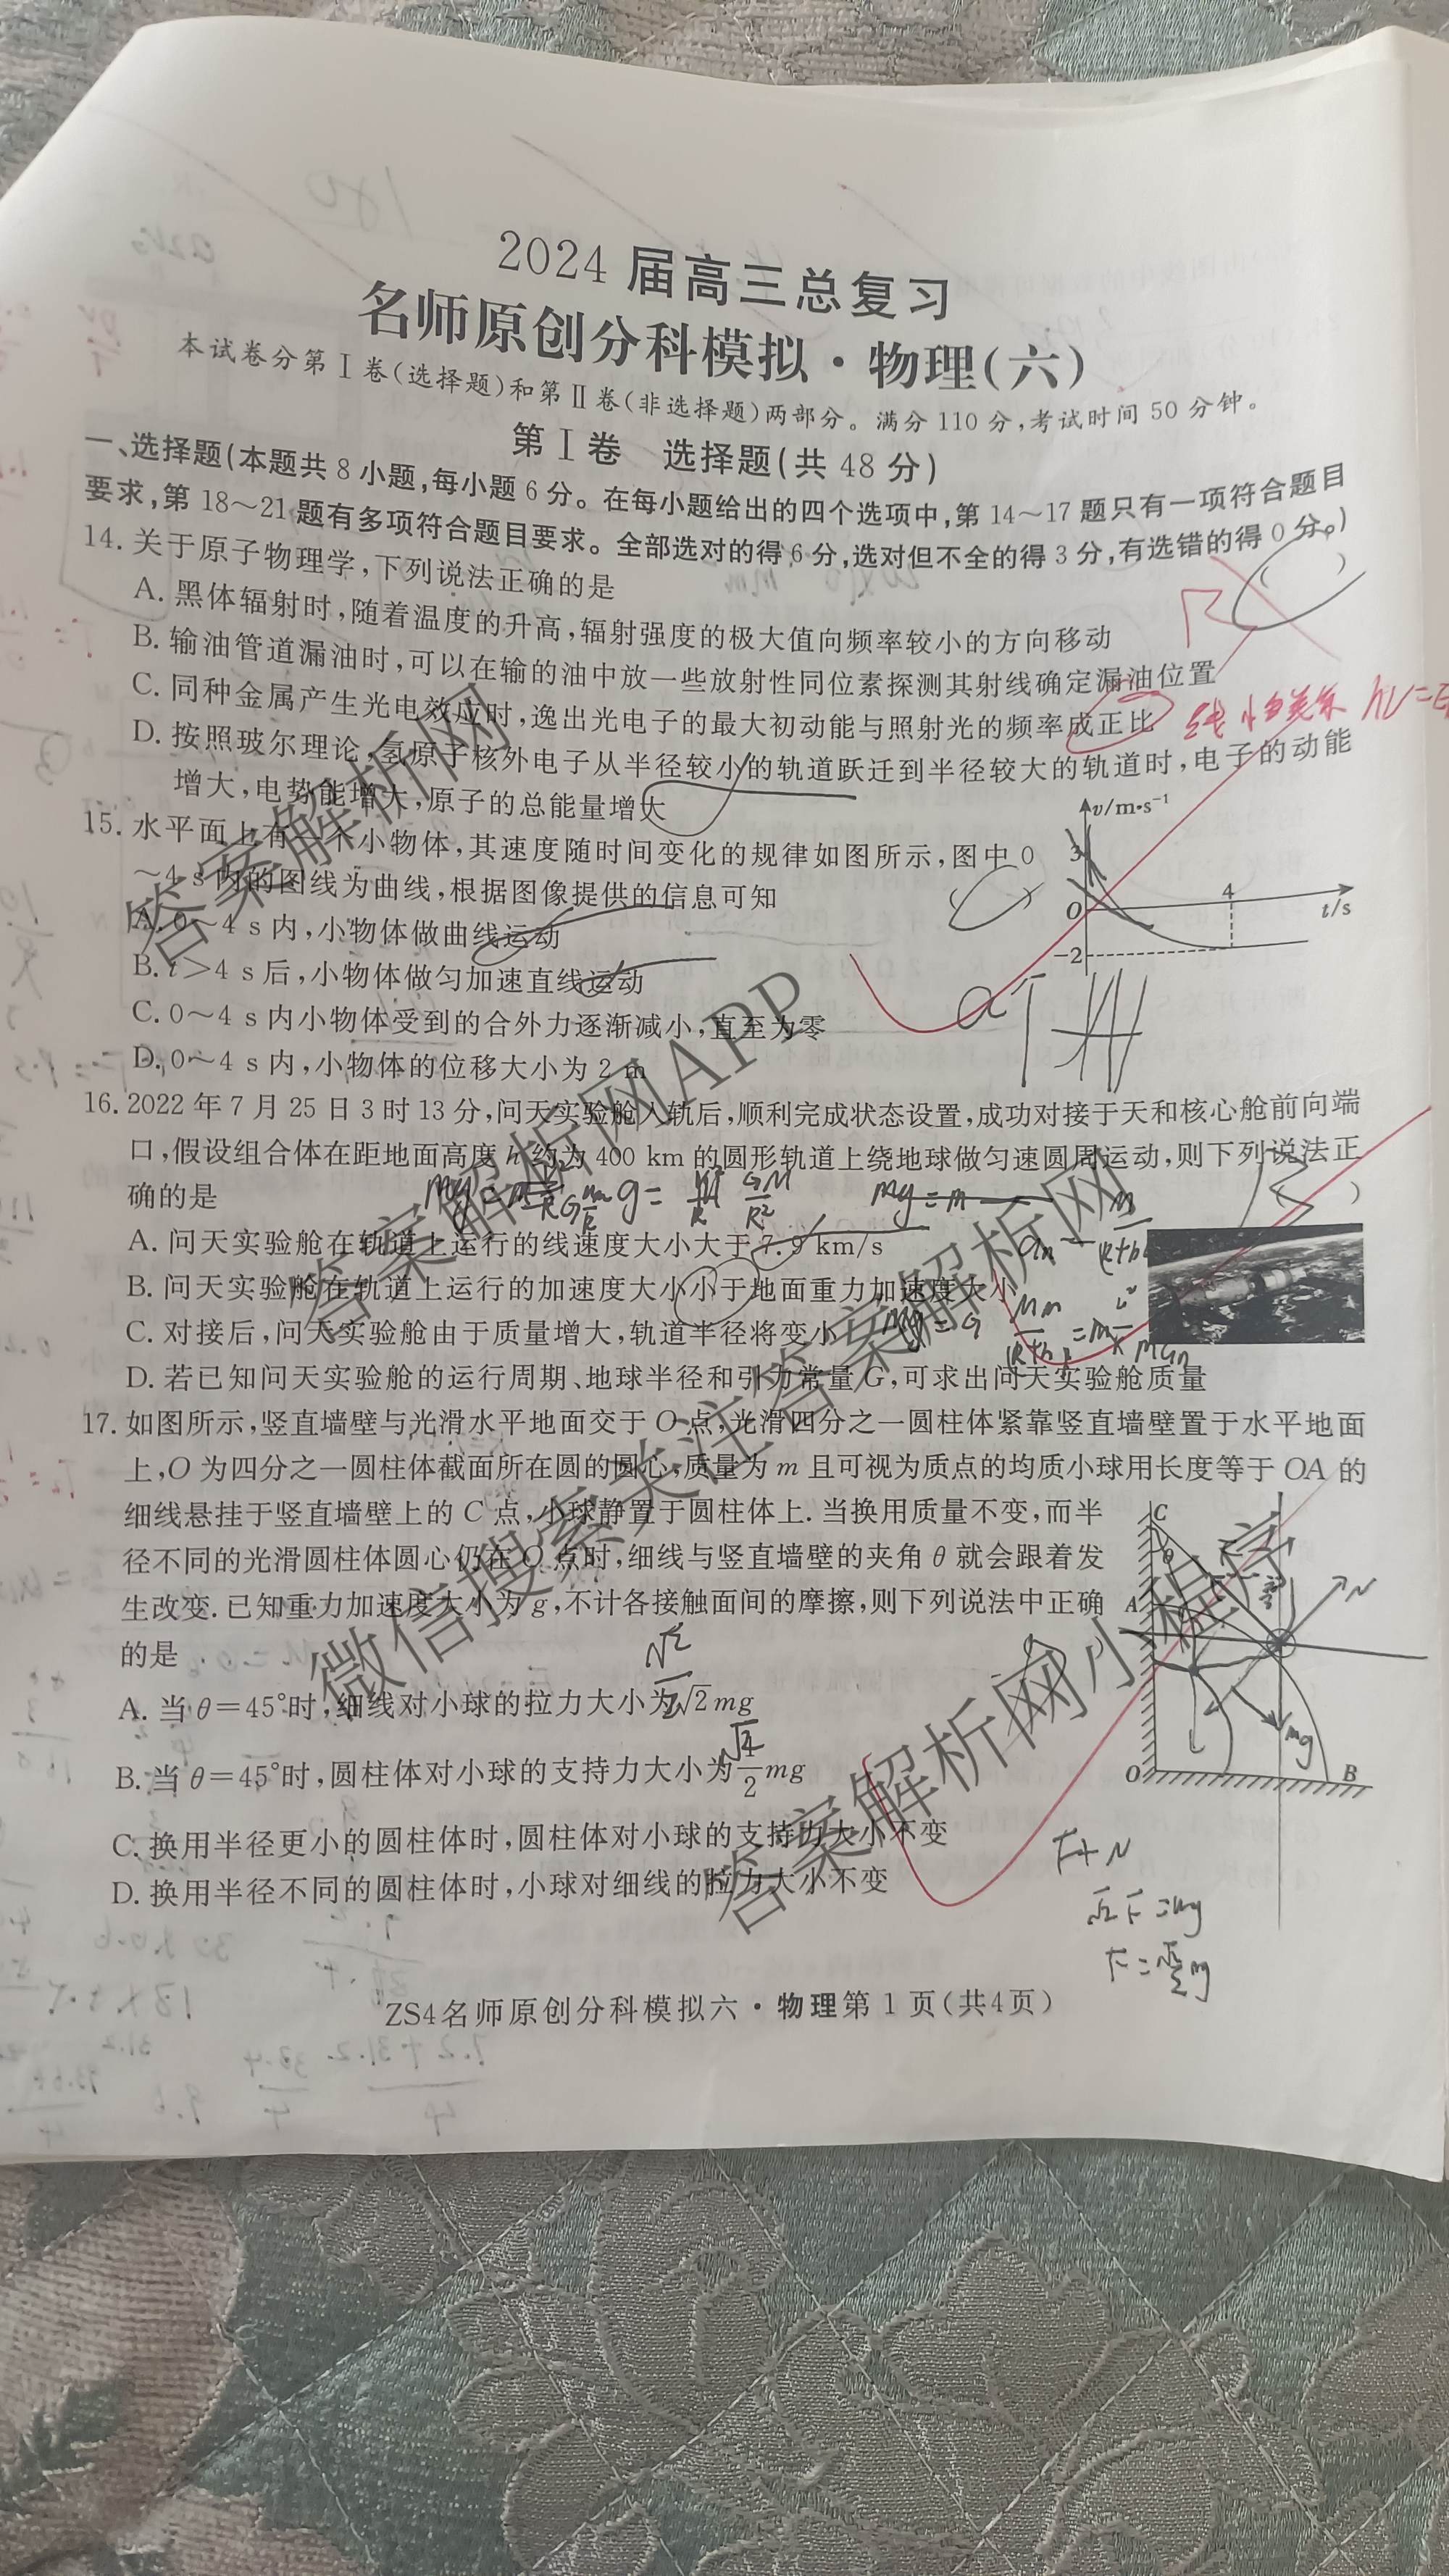 2024 届高三总复习
名师原创分科模拟·物理(六)
本试卷分第Ⅰ卷(选择题)和第Ⅱ卷(非选择题)两部分。满分 110 分,考试时间 50 分钟。
第Ⅰ卷 选择题(共 48 分)
一、选择题(本题共 8 小题,每小题 6 分。在每小题给出的四个选项中,第 14~17 题只有一项符合题目
要求,第 18~21 题有多项符合题目要求。全部选对的得 6 分,选对但不全的得 3 分,有选错的得 0 分。)
14. 关于原子物理学,下列说法正确的是 ( )
A. 黑体辐射时,随着温度的升高,辐射强度的极大值向频率较小的方向移动
B. 输油管道漏油时,可以在输的油中放一些放射性同位素探测其射线确定漏油位置
C. 同种金属产生光电效应时,逸出光电子的最大初动能与照射光的频率成正比
D. 按照玻尔理论,氢原子核外电子从半径较小的轨道跃迁到半径较大的轨道时,电子的动能
增大,电势能增大,原子的总能量增大
15. 水平面上有一个小物体,其速度随时间变化的规律如图所示,图中 0
~4 s 内的图线为曲线,根据图像提供的信息可知 ( )
A. 0~4 s 内,小物体做曲线运动
B. t>4 s 后,小物体做匀加速直线运动
C. 0~4 s 内小物体受到的合外力逐渐减小,直至为零
D. 0~4 s 内,小物体的位移大小为 2 m
v/m·s⁻¹
3
O
4
t/s
-2
16. 2022 年 7 月 25 日 3 时 13 分,问天实验舱入轨后,顺利完成状态设置,成功对接于天和核心舱前向端
口,假设组合体在距地面高度 h 约为 400 km 的圆形轨道上绕地球做匀速圆周运动,则下列说法正
确的是 ( )
A. 问天实验舱在轨道上运行的线速度大小大于 7.9 km/s
B. 问天实验舱在轨道上运行的加速度大小小于地面重力加速度大小
C. 对接后,问天实验舱由于质量增大,轨道半径将变小
D. 若已知问天实验舱的运行周期、地球半径和引力常量 G,可求出问天实验舱质量
17. 如图所示,竖直墙壁与光滑水平地面交于 O 点,光滑四分之一圆柱体紧靠竖直墙壁置于水平地面
上,O 为四分之一圆柱体截面所在圆的圆心,质量为 m 且可视为质点的均质小球用长度等于 OA 的
细线悬挂于竖直墙壁上的 C 点,小球静置于圆柱体上. 当换用质量不变,而半
径不同的光滑圆柱体圆心仍在 O 点时,细线与竖直墙壁的夹角 θ 就会跟着发
生改变. 已知重力加速度大小为 g,不计各接触面间的摩擦,则下列说法中正确
的是 ( )
A. 当 θ=45°时,细线对小球的拉力大小为 √2 mg
B. 当 θ=45°时,圆柱体对小球的支持力大小为 1/2 mg
C. 换用半径更小的圆柱体时,圆柱体对小球的支持力大小不变
D. 换用半径不同的圆柱体时,小球对细线的拉力大小不变
C
θ
A
O
B
N
mg
F+N
√2F=mg
ZS4名师原创分科模拟六·物理第 1 页(共4页)
答案解析网
答案解析网APP
微信搜索关注答案解析网
答案解析网小程序